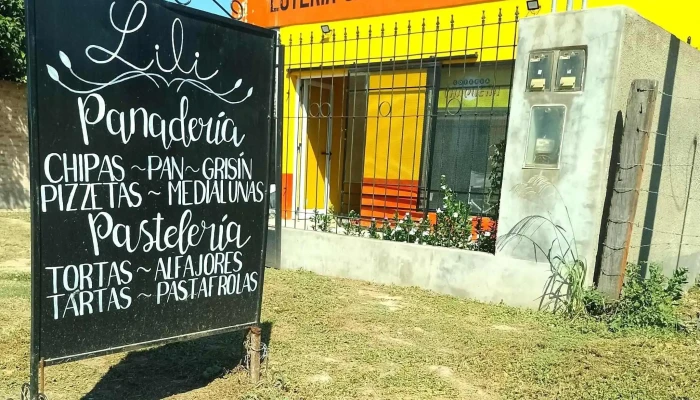 Lili
Panadería
CHIPAS ~ PAN ~ GRISÍN
PIZZETAS ~ MEDIALUNAS
Pastelería
TORTAS ~ ALFAJORES
TARTAS ~ PASTAFROLAS